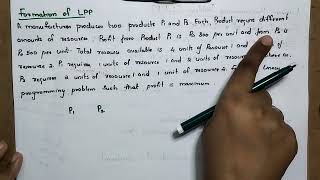 Formation of LPP
A manufacturer produces two products P₁ and P₂. Each Product require different
amounts of resource. Profit from Product P₁ is Rs 300 per unit and from P₂ is
Rs 500 per unit. Total resource available is 4 units of Resource 1 and of
resource 2. P₁ requires 1 units of resource 1 and 2 units of resource
P₂ requires 2 units of resource 1 and 1 unit of resource 2.
programming problem such that profit is maximum.
P₁ P₂